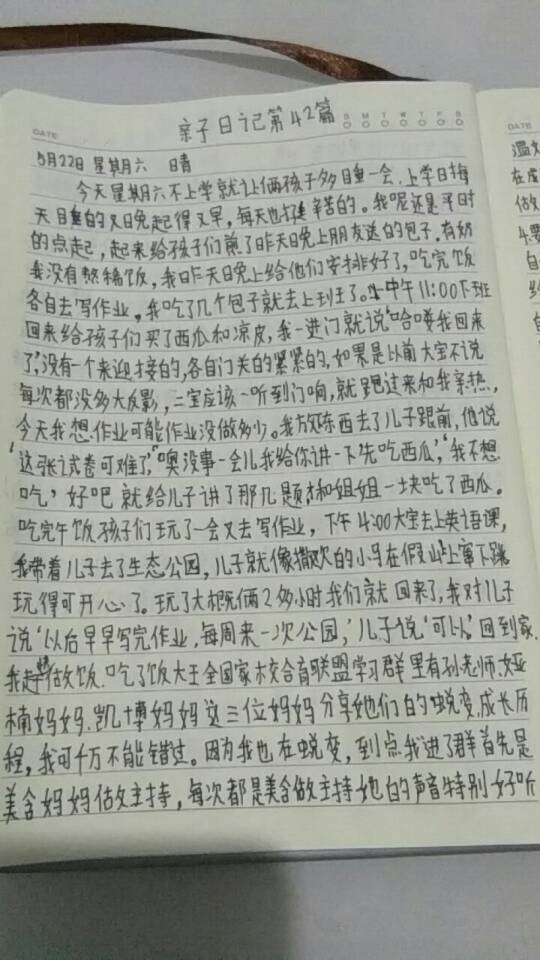 亲子日记第42篇
DATE
S M T W T F S
5月22日 星期六 晴
今天星期六不上学就让俩孩子多睡一会.上学日每
天睡的又晚起得又早,每天也挺辛苦的。我呢还是平时
的点起,起来给孩子们煎了昨天晚上朋友送的包子.有奶
我没有熬稀饭,我昨天晚上给他们安排好了,吃完饭
各自去写作业。我吃了几个包子就去上班了。中午11:00下班
回来给孩子们买了西瓜和凉皮,我一进门就说"哈喽我回来
了",没有一个来迎接的,各自门关的紧紧的,如果是以前大宝不说
每次都没多大反影,二宝应该一听到门响,就跑过来和我亲热,
今天我想.作业可能作业没做多少。我放东西去了儿子跟前,他说
'这张试卷可难了,'"噢没事一会儿我给你讲一下先吃西瓜,'我不想
吃'好吧 就给儿子讲了那几题才和姐姐一块吃了西瓜。
吃完午饭孩子们玩了一会又去写作业,下午4:00大宝去上英语课,
我带着儿子去了生态公园,儿子就像撒欢的小马在假山上窜下跳
玩得可开心了。玩了大概俩2多小时我们就回来了,我对儿子
说'以后早早写完作业,每周来一次公园,'儿子说'可以'回到家.
我赶紧做饭.吃了饭大王全国家校合育联盟学习群里有孙老师.娅
楠妈妈.凯博妈妈这三位妈妈分享她们的蜕变.成长历
程,我可千万不能错过。因为我也在蜕变,到点我进了群首先是
美含妈妈做主持,每次都是美含做主持她的声音特别好听
DATE